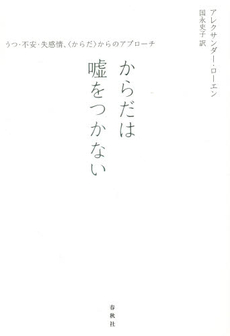 アレクサンダー・ローエン
国永史子 訳
うつ・不安・失感情、〈からだ〉からのアプローチ
からだは
嘘をつかない
春秋社